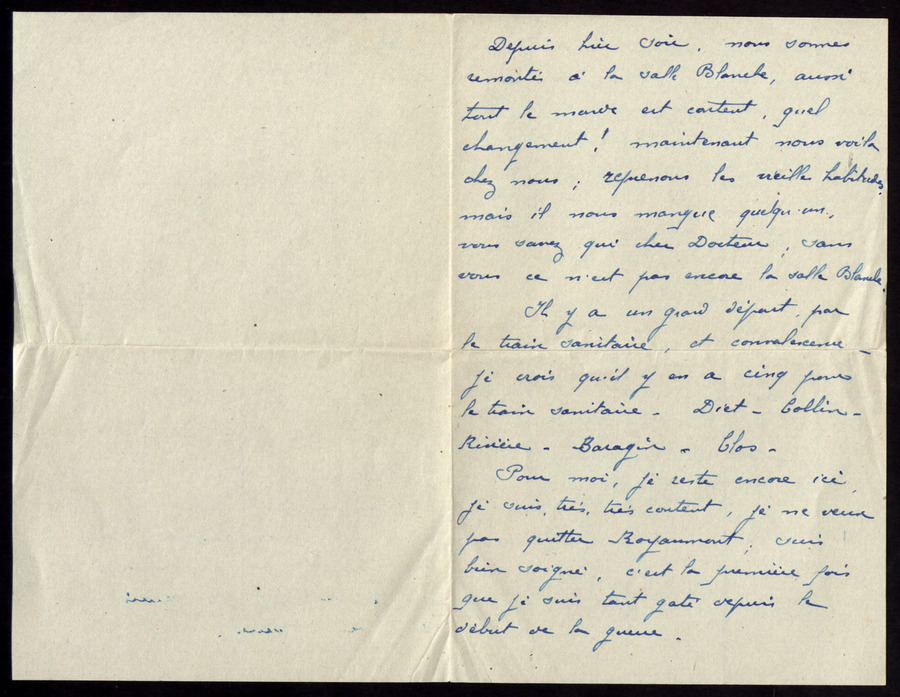 Depuis hier soir, nous sommes
remontés à la salle Blanche, aussi
tout le monde est content, quel
changement! maintenant nous voila
chez nous; reprenons les vieille habitudes,
mais il nous manque quelqu'un,
vous savez qui cher Docteur, sans
vous ce n'est pas encore la salle Blanche.
Il y a un grand départ, par
le train sanitaire, et convalescence –
je crois qu'il y en a cinq pour
le train sanitaire – Diet – Collin –
Rivière – Baragin – Clos –
Pour moi, je reste encore ici,
je suis, très, très content, je ne veux
pas quitter Royaumont; suis
bien soigné, c'est la première fois
que je suis tant gaté depuis le
début de la guerre.